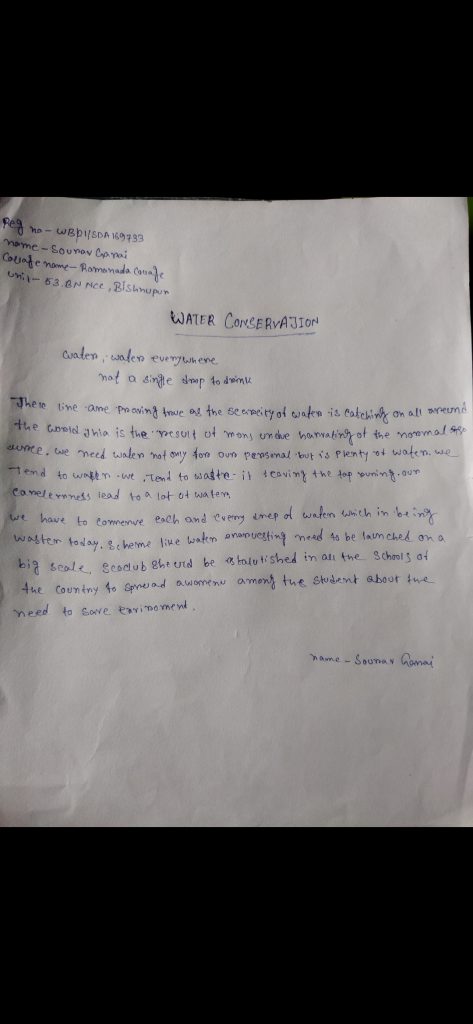 Reg no - WBP1/SDA169793
name - Sounav Ganai
Collage name - Ramanada Collage
Unit - 53 BN NCC, Bishnupur
WATER CONSERVATION
water, water everywhere
not a single drop to drink
These line are proving true as the scarcity of water is catching on all around
the world this is the result of mans undue harvating of the normal
ource. we need water not only for our personal but is plenty of water. we
Tend to we, Tend to waste it leaving the tap runing. our
carelerness lead to a lot of waters
we have to conserve each and every drep of water which in being
waster today. Scheme like water need to be launched on a
big scale. Ecoclub should be in all the schools of
the country to spread among the student about the
need to save
name - Sounav Ganai